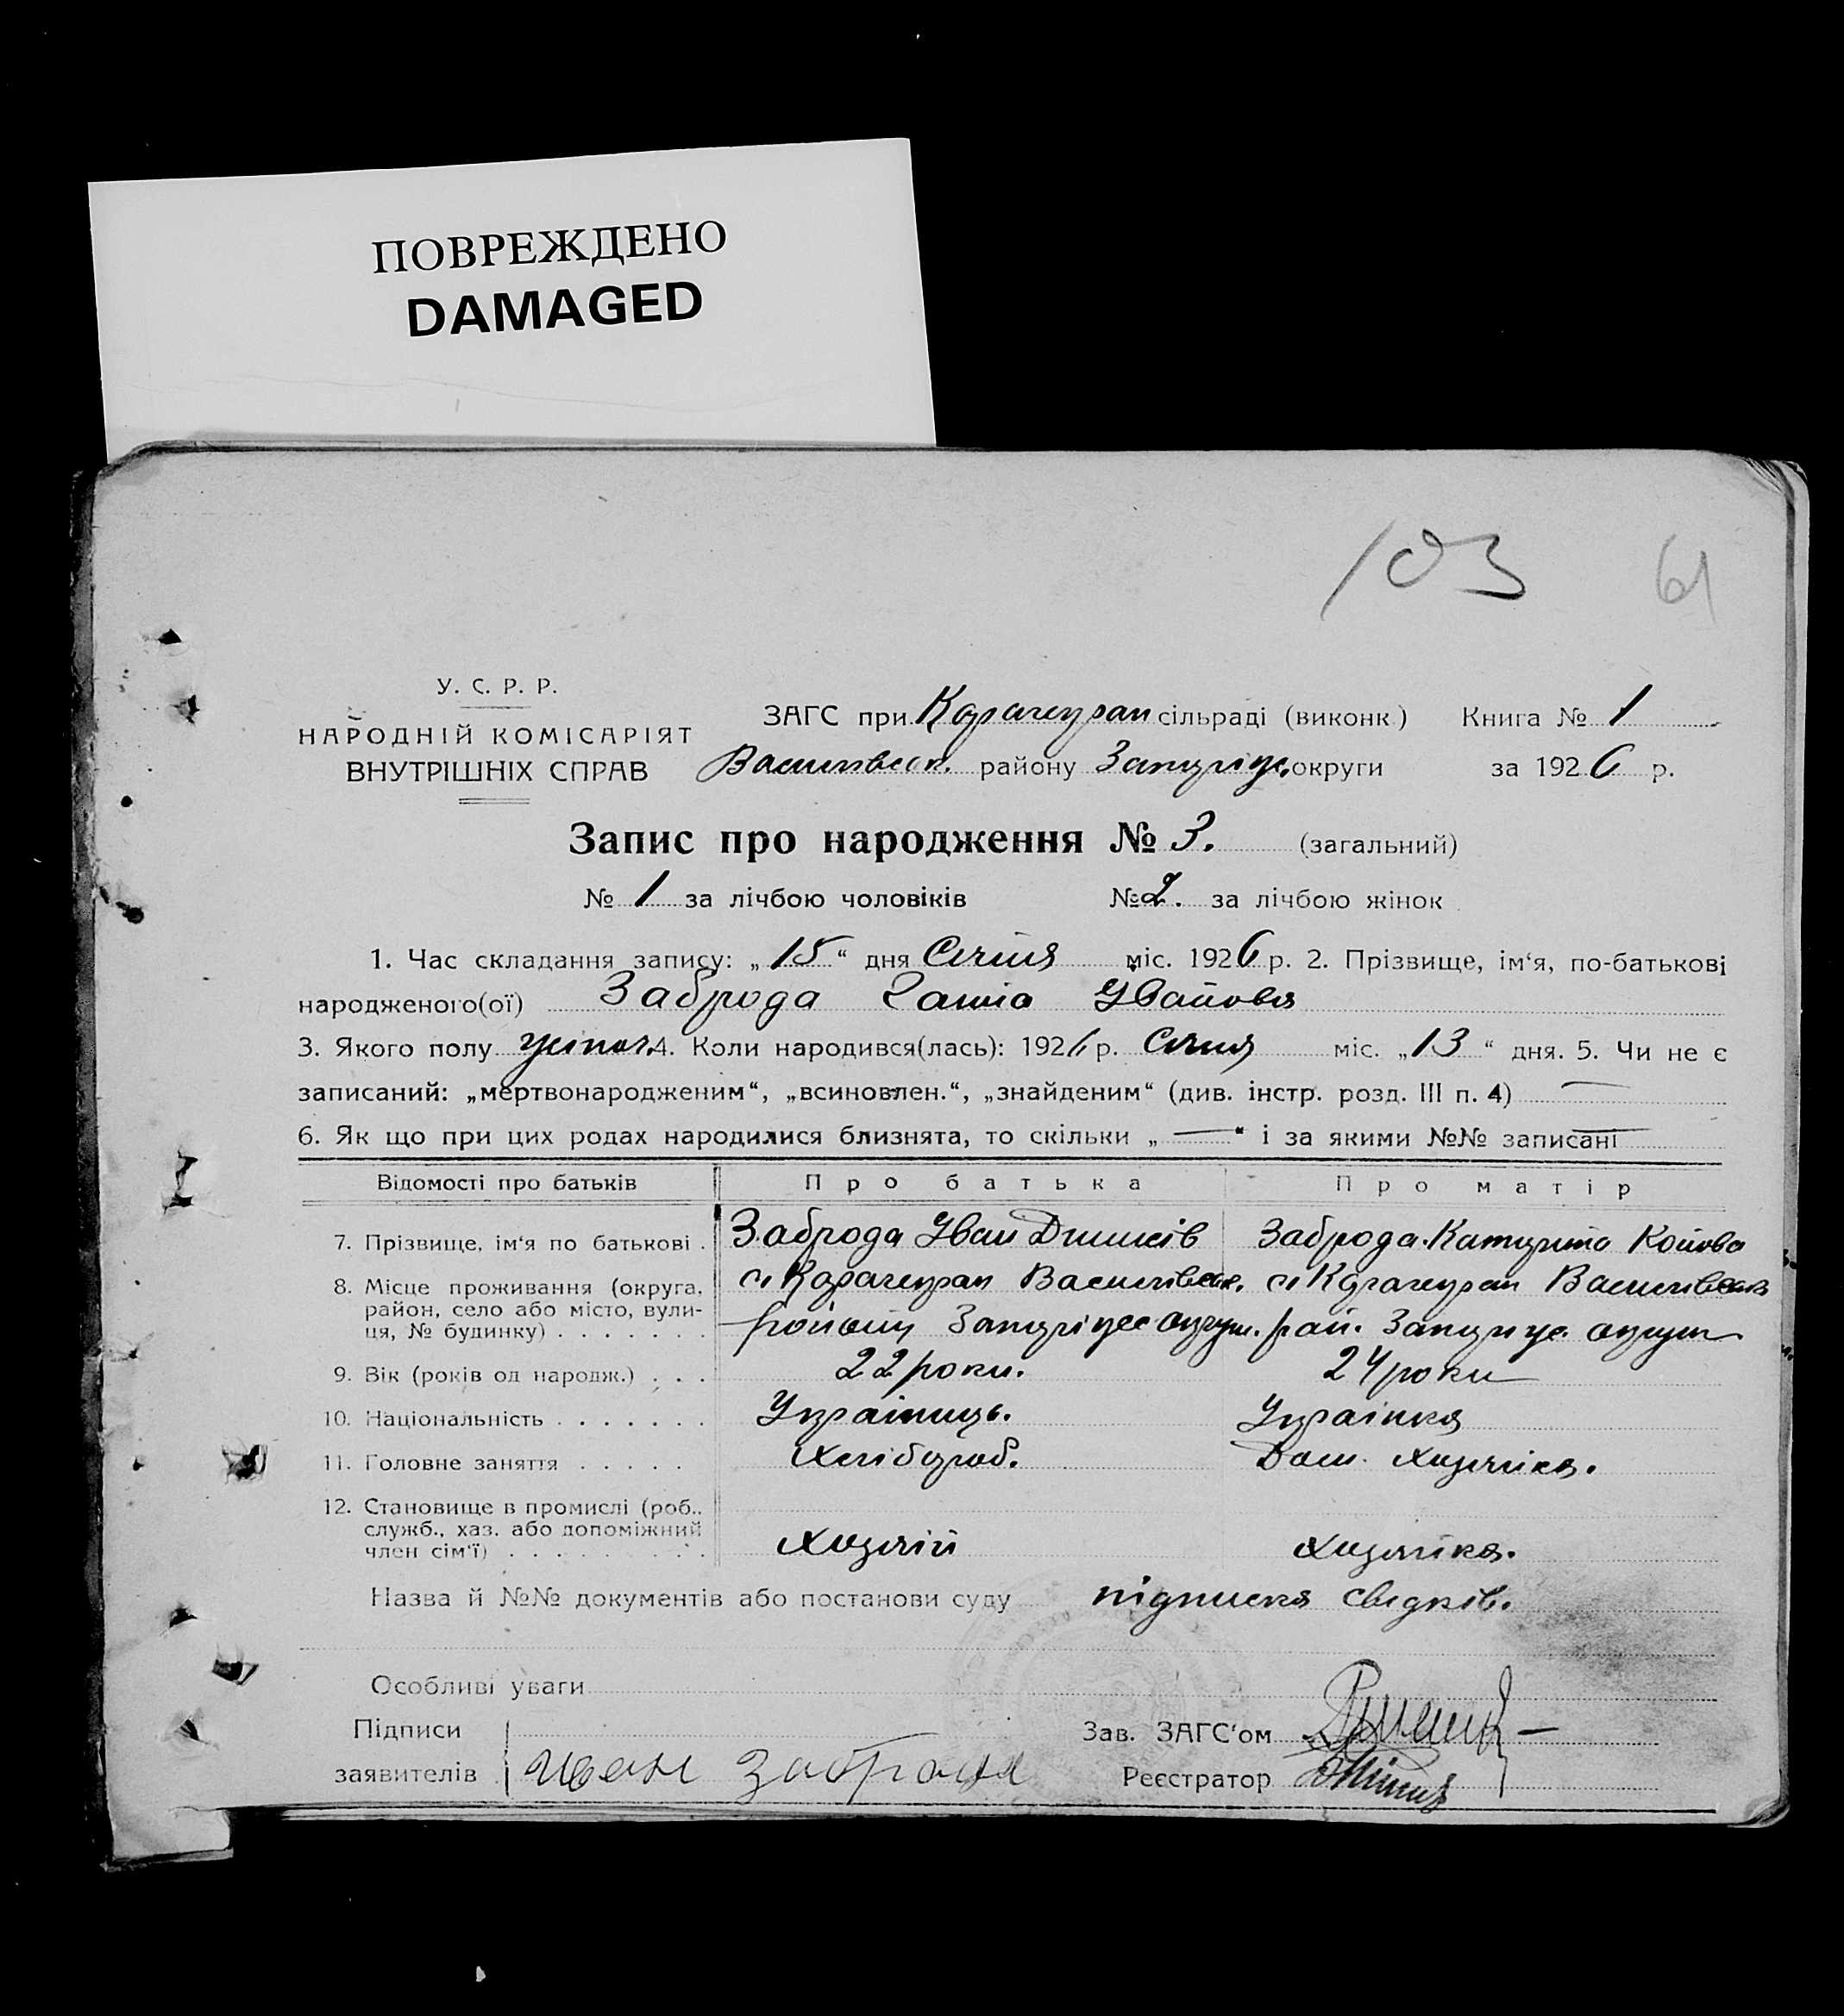 ПОВРЕЖДЕНО
DAMAGED
103 61
У. С. Р. Р.
НАРОДНІЙ КОМІСАРІЯТ
ВНУТРІШНІХ СПРАВ
ЗАГС при сільраді (виконк.) Книга № 1
Василівск. району Запоріж. округи за 1926 р.
Запис про народження № 3. (загальний)
№ 1 за лічбою чоловіків № 2. за лічбою жінок
1. Час складання запису: „15“ дня Січня міс. 1926 р. 2. Прізвище, ім‘я, по-батькові
народженого(ої) Заброда Івановя
3. Якого полу 4. Коли народився(лась): 1926 р. Січня міс. „13“ дня. 5. Чи не є
записаний: „мертвонародженим“, „всиновлен.“, „знайденим“ (див. інстр. розд. III п. 4) —
6. Як що при цих родах народилися близнята, то скільки „—“ і за якими №№ записані —
Відомості про батьків Про батька Про матір
7. Прізвище, ім‘я по батькові . Заброда Іван Заброда Катерина
8. Місце проживання (округа, с. Василівськ. с. Василівськ
район, село або місто, вули-
ця, № будинку) . . . . . . . району Запоріжс округи. рай. Запоріж. округи
9. Вік (років од народж.) . . . 22 роки. 24 роки
10. Національність . . . . . . . Українець. Українка
11. Головне заняття . . . . . Хлібороб. Дом. хозяйка.
12. Становище в промислі (роб.,
служб., хаз. або допоміжний
член сім‘ї) . . . . . . . . . . Хозяїн хозяйка.
Назва й №№ документів або постанови суду підписка свідків.
Особливі уваги
Підписи Зав. ЗАГС‘ом
заявителів Иван Заброда Реєстратор